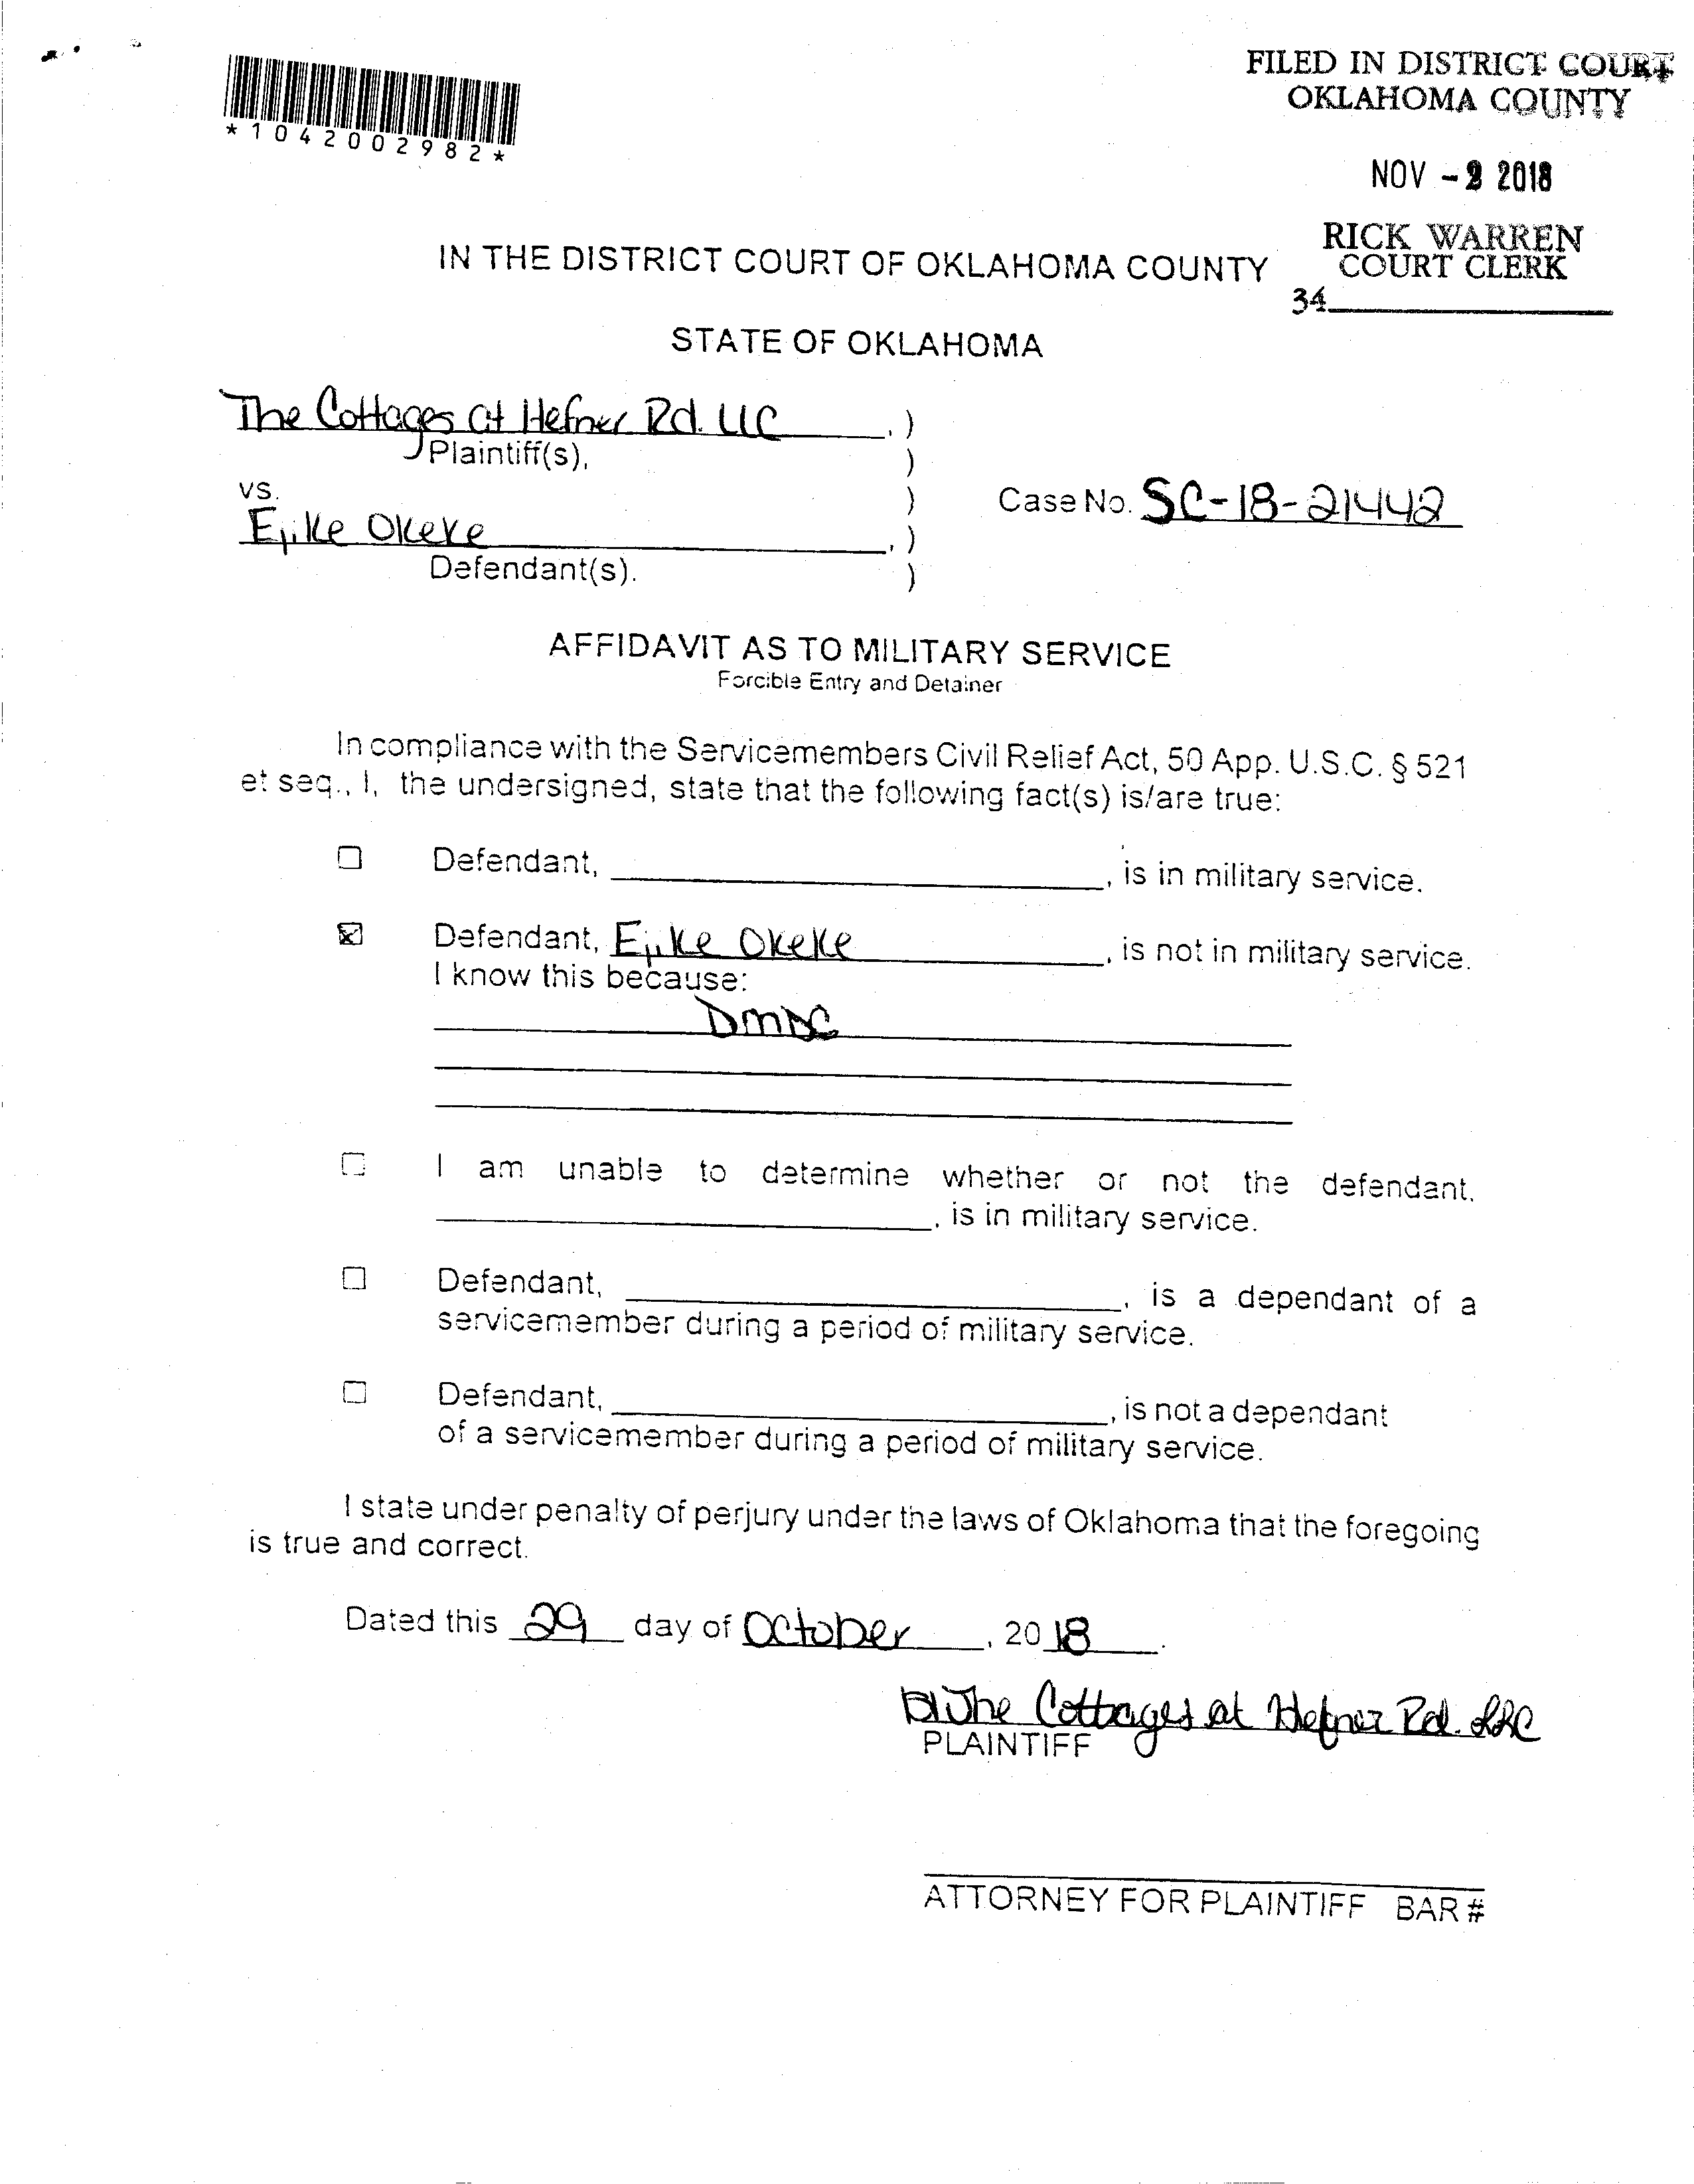 FILED IN DISTRICT COURT
OKLAHOMA COUNTY
*1042002982*
NOV - 2018
RICK WARREN
COURT CLERK
34
IN THE DISTRICT COURT OF OKLAHOMA COUNTY
STATE OF OKLAHOMA
The Cottages at Hefner Rd. LLC , )
Plaintiff(s), )
vs. )
Ejike Okeke , )
Defendant(s). )
Case No. SC-18-21442
AFFIDAVIT AS TO MILITARY SERVICE
Forcible Entry and Detainer
In compliance with the Servicemembers Civil Relief Act, 50 App. U.S.C. § 521
et seq., I, the undersigned, state that the following fact(s) is/are true:
☐ Defendant, , is in military service.
☒ Defendant, Ejike Okeke , is not in military service.
I know this because:
DMDC
☐ I am unable to determine whether or not the defendant,
, is in military service.
☐ Defendant, , is a dependant of a
servicemember during a period of military service.
☐ Defendant, , is not a dependant
of a servicemember during a period of military service.
I state under penalty of perjury under the laws of Oklahoma that the foregoing
is true and correct.
Dated this 29 day of October , 20 18 .
The Cottages at Hefner Rd. LLC
PLAINTIFF
ATTORNEY FOR PLAINTIFF BAR #